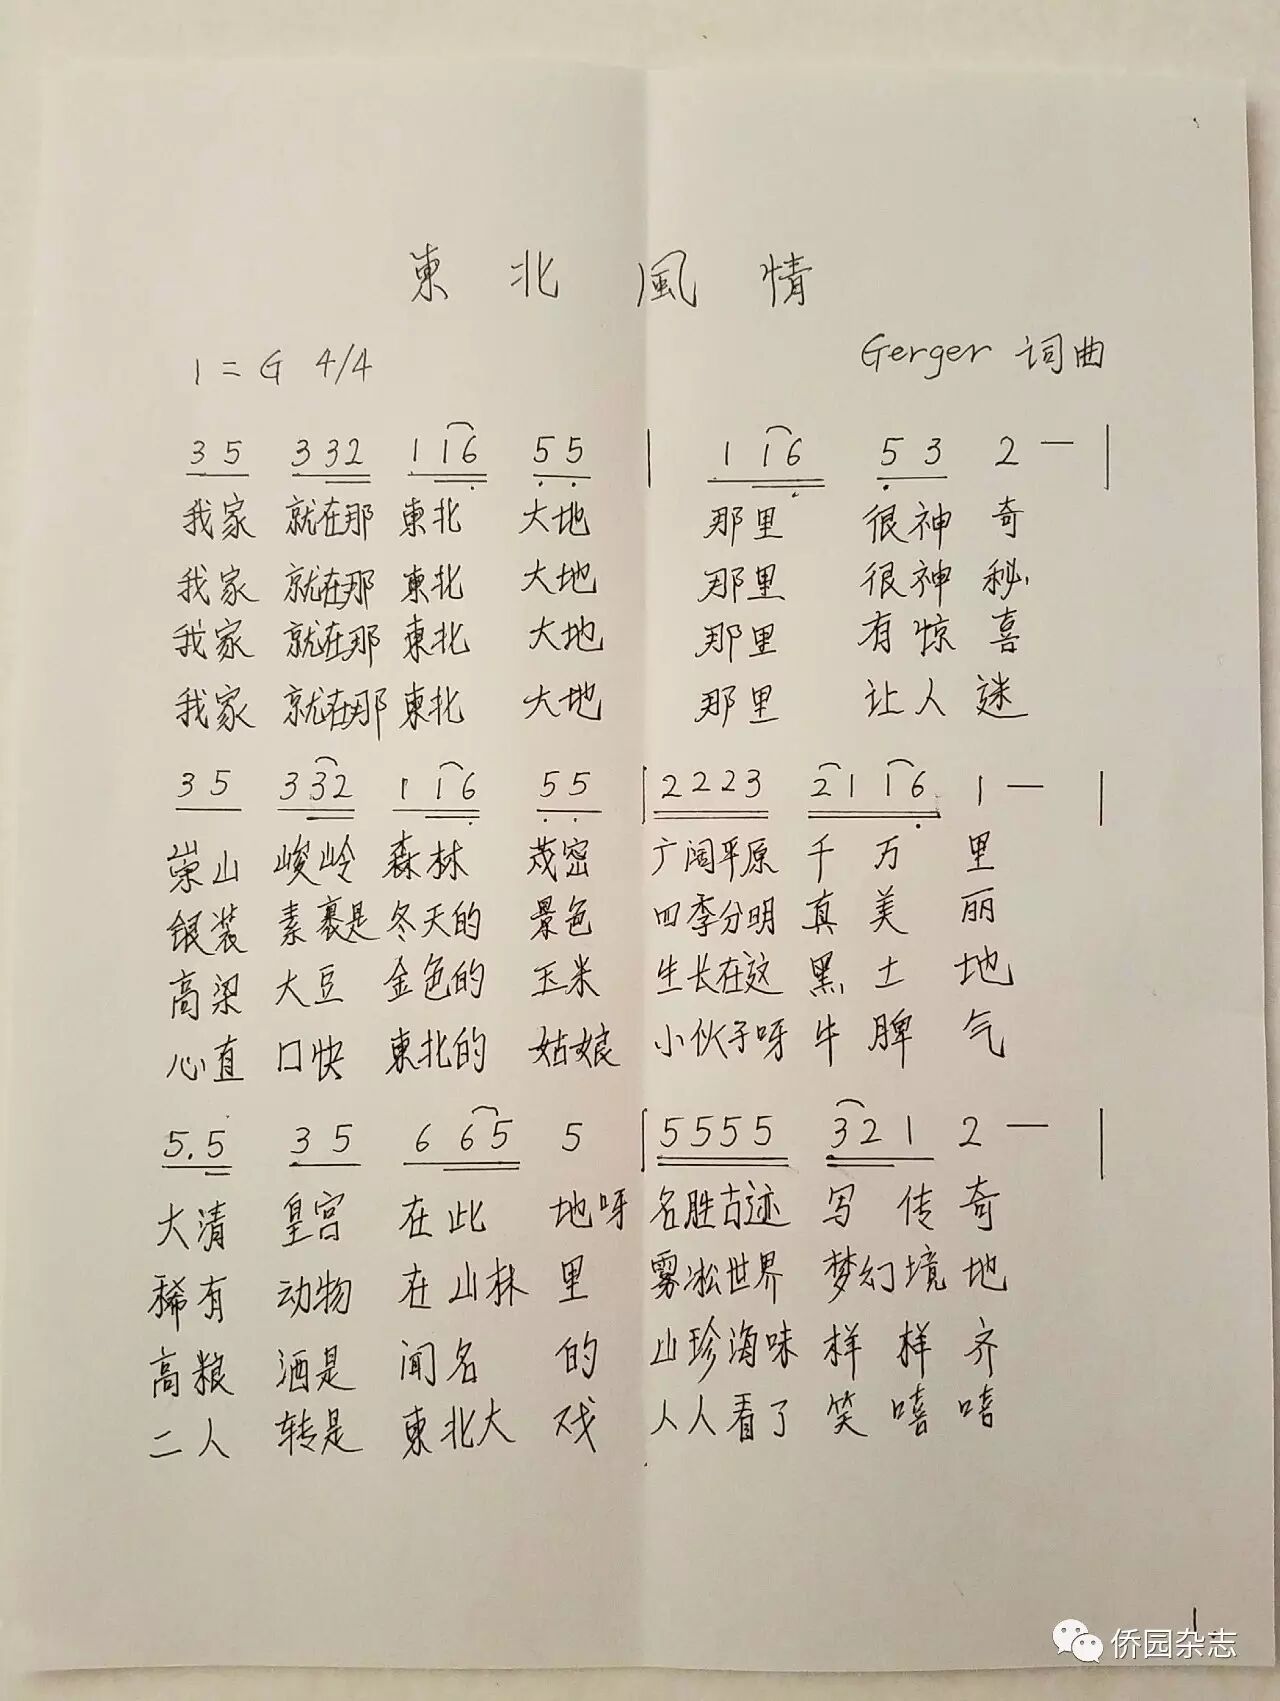 東北風情
1=G 4/4 Gerger 词曲
3 5 3 3 2 1 1 6 5 5 | 1 1 6 5 3 2 — |
我家 就在那 東北 大地 那里 很神 奇
我家 就在那 東北 大地 那里 很神 秘
我家 就在那 東北 大地 那里 有惊 喜
我家 就在那 東北 大地 那里 让人 迷
3 5 3 3 2 1 1 6 5 5 | 2 2 2 3 2 1 1 6 1 — |
崇山 峻岭 森林 茂密 广阔平原 千 万 里
银装 素裹是 冬天的 景色 四季分明 真 美 丽
高梁 大豆 金色的 玉米 生长在这 黑 土 地
心直 口快 東北的 姑娘 小伙子呀 牛 脾 气
5. 5 3 5 6 6 5 5 | 5 5 5 5 3 2 1 2 — |
大清 皇宫 在此 地呀 名胜古迹 写 传 奇
稀有 动物 在山林 里 雾凇世界 梦幻 境 地
高粮 酒是 闻名 的 山珍海味 样 样 齐
二人 转是 東北大 戏 人人看了 笑 嘻 嘻
1.
侨园杂志